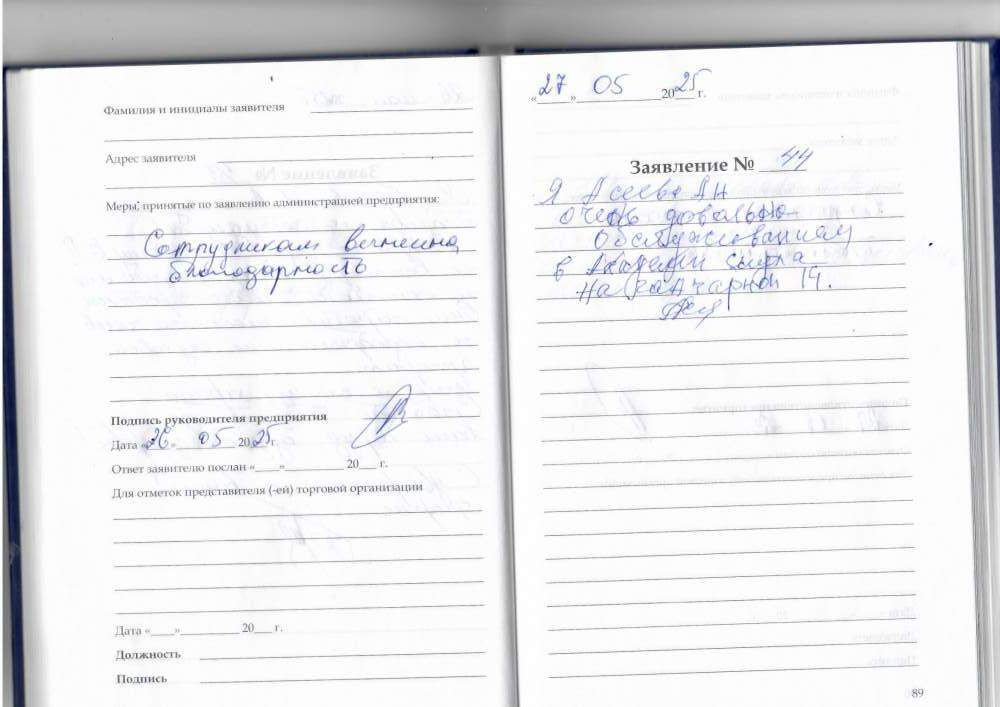 Фамилия и инициалы заявителя
Адрес заявителя
Меры, принятые по заявлению администрацией предприятия:
Сотрудникам вынесина
благодарность
Подпись руководителя предприятия
Дата «26» 05 2025 г.
Ответ заявителю послан «____»__________ 20___ г.
Для отметок представителя (-ей) торговой организации
Дата «____»__________ 20___ г.
Должность
Подпись
«27» 05 2025 г.
Заявление № 44
Я Асеева АН
очень довольна
Обслуживанием
в Академии
На 14.
89